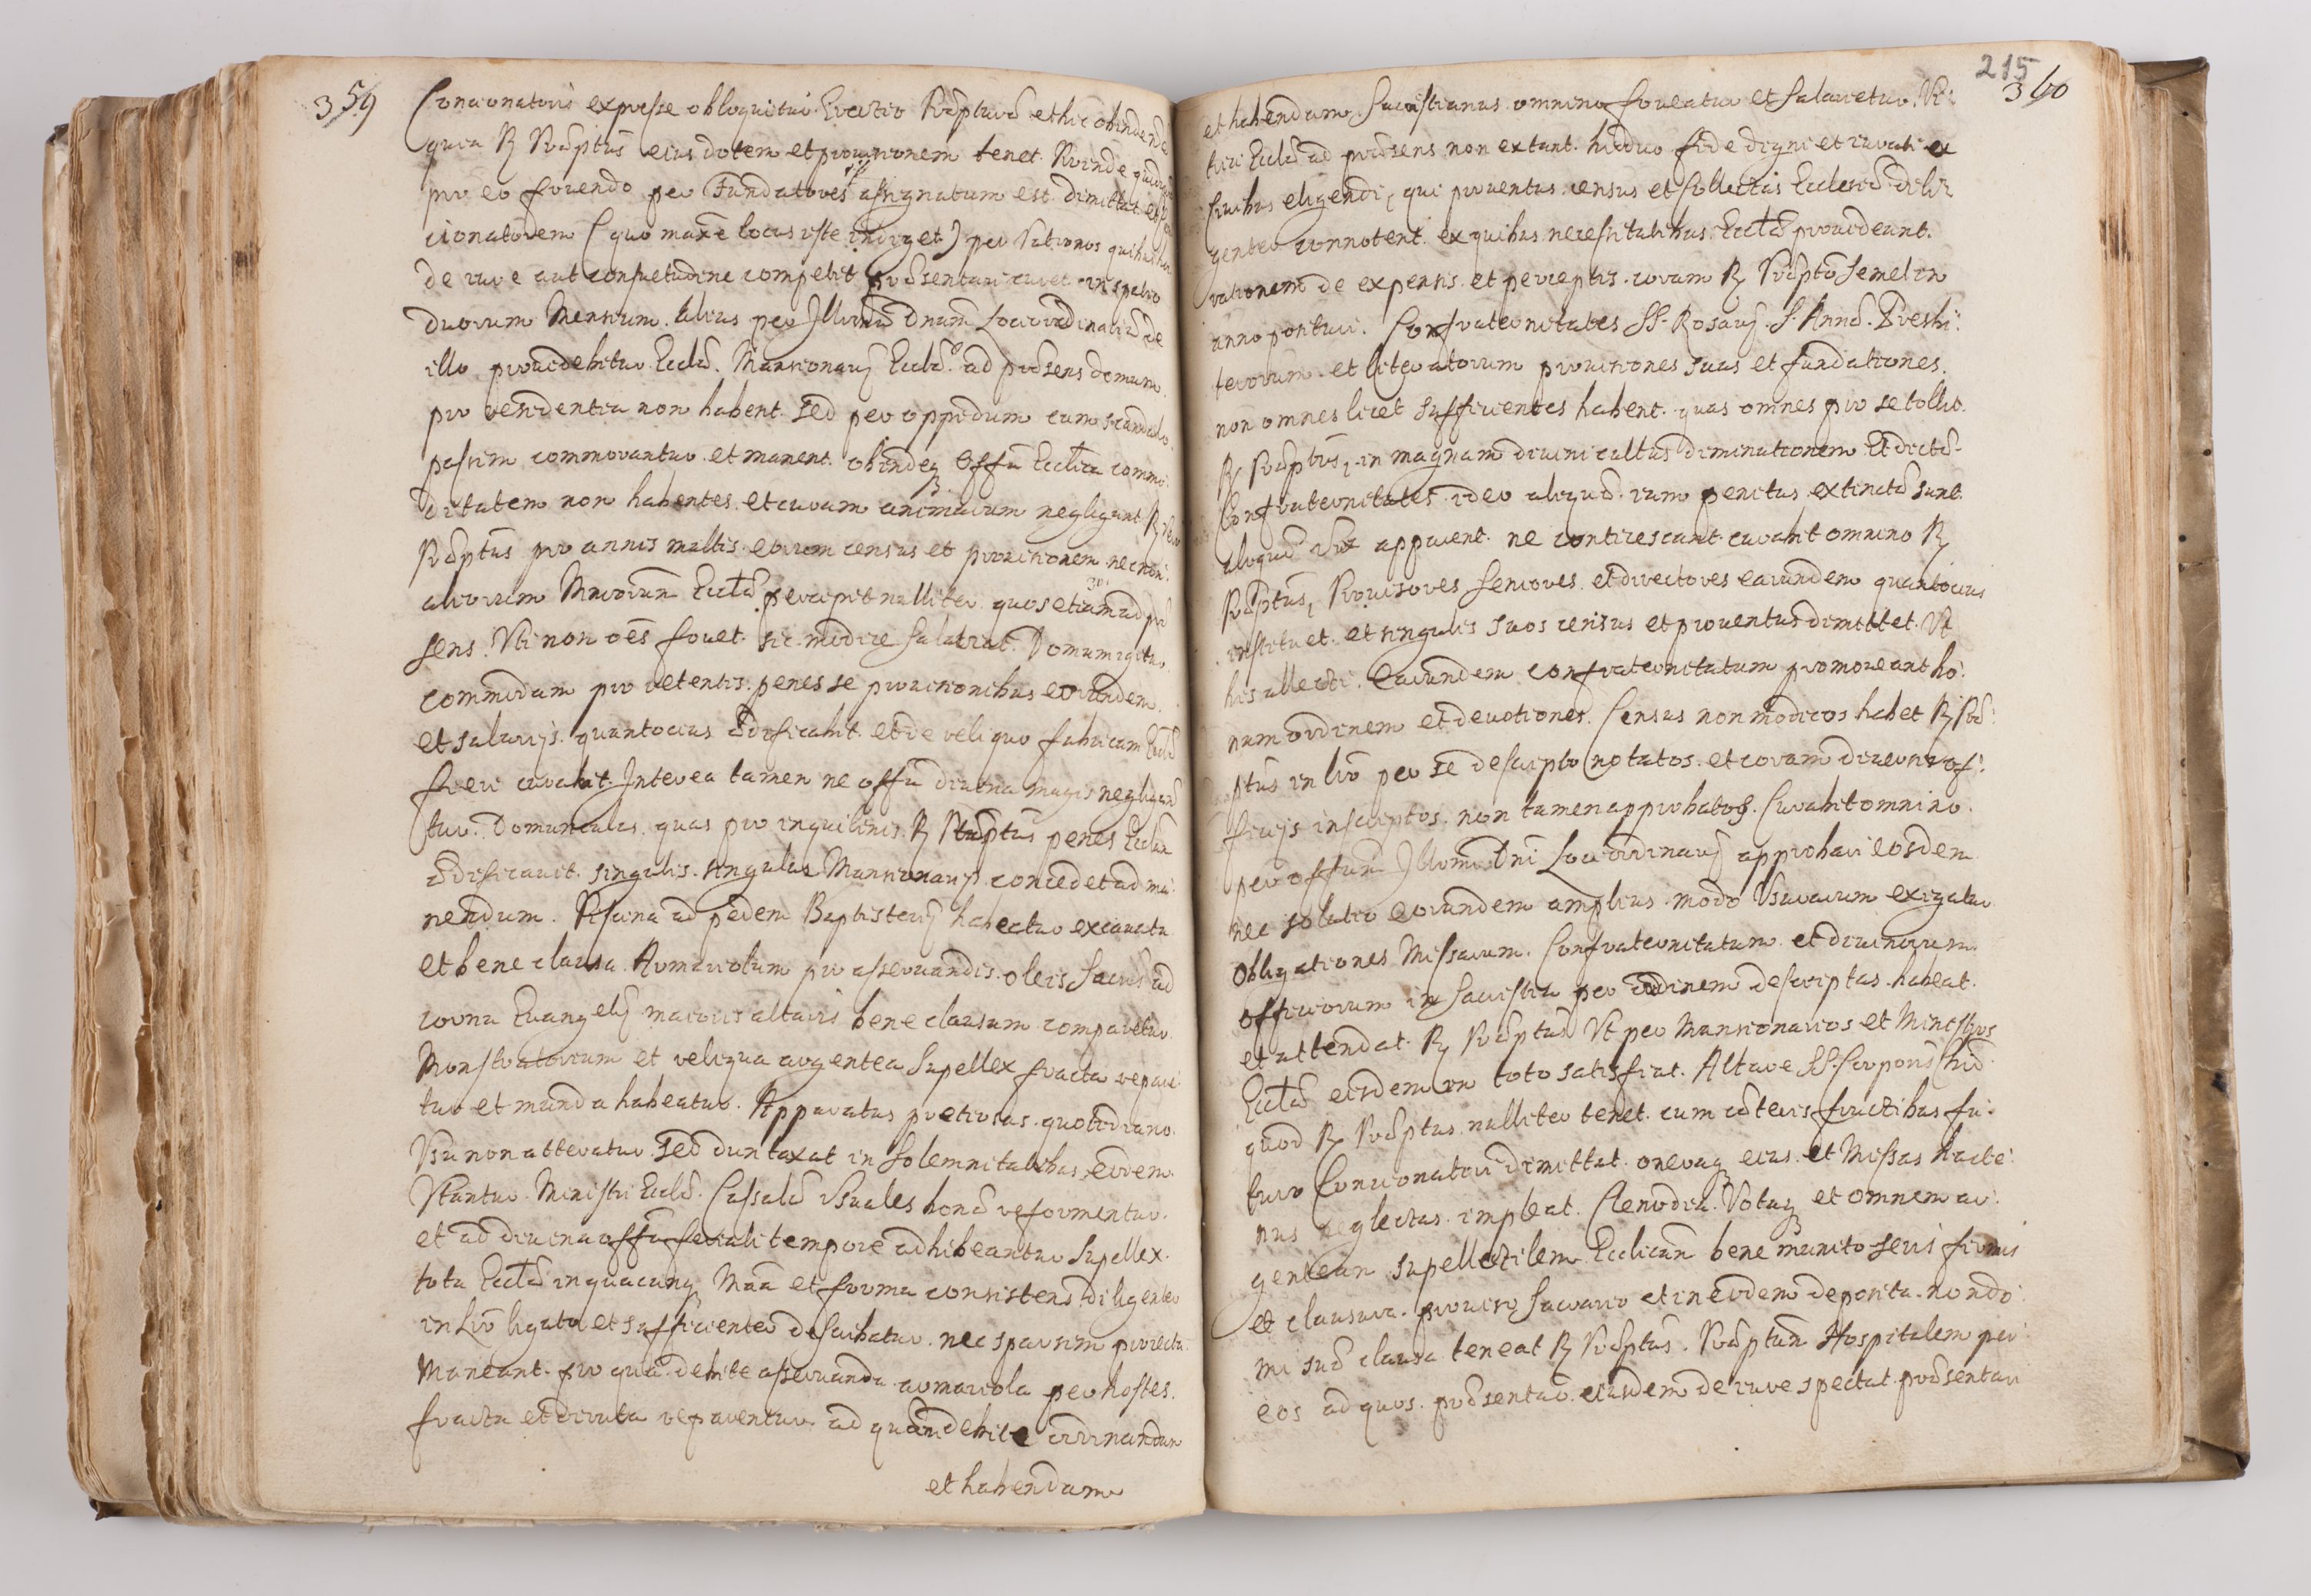 359
Concionatoris expresse obloquitur Erectio Præpturæ et hic obinde
quia R Præptus eius dotem et prouisionem tenet. Proinde quidquid
pro eo fouendo per Fundatores assignatum est dimittat
cionatorem (quo maxe locus iste indiget) per Patronos quibus
de iure aut consuetudine competit præsentari curet in spatio
duorum Mensium. Alias per Illrmu Dnum Loci ordinariu de
illo prouidebitur Ecclæ. Mansionarij Ecclæ ad præsens domum
pro residentia non habent. sed per oppidum cum scandalo
passim commorantur et manent. obindeq Offa Ecclica commo:
ditatem non habentes et curam animarum negligunt R
Præptus pro annis multis eorum census et prouisionem nec non
aliorum Mrorum Ecclæ percepit nulliter quos etiam ad præ
sens. Vti non oes fouet. sic modice salariat. Domum igitur
commodam pro retentis penes se prouisionibus eorundem
et salarijs quantocius Ædificabit. et de reliquo fabricam Ecclæ
fieri curabit. Interea tamen ne offa diuina magis negligan
tur. Domunculas quas pro inquilinis R Præptus penes Ecclam
Ædificauit. singulis singulas Mansionarijs concedet ad ma:
nendum. Piscina ad pedem Baptisterij habeatur excauata
et bene clausa. Armariolum pro asseruandis oleis Sacris ad
cornu Euangelij maioris altaris bene clausum comparetur
Monstratorium et reliqua argentea supellex fracta repare:
tur et munda habeatur. Apparatus pretiosus quotidiano
Vsu non atteratur sed duntaxat in solemnitatibus eodem
Vtantur Ministri Ecclæ. Casulæ Vsuales bonæ reformentur
et ad diuina offa feriali tempore adhibeantur Supellex
tota Ecclæ in quacunq Mãa et forma consistens diligenter
in Libro ligato et sufficienter describatur. nec sparsim proiecta
Maneant. pro qua debite asseruanda armariola per hostes
fracta et diruta reparentur ad quam debite ordinandam
et habendam
215
360
et habendam Sacristianus omnino foueatur et salarietur. Vi:
trici Ecclæ ad præsens non extant. hi duo fide digni et iurati ex
ciuibus eligendi, qui prouentus census et Collectas Ecclesiæ dili:
genter connotent ex quibus necessitatibus Ecclæ prouideant.
rationem de expensis et perceptis coram R Præpto semel in
anno posturi. Confraternitates SS. Rosarij. S. Annæ. Presbi:
terorum et literatorum prouisiones suas et fundationes
non omnes licet sufficientes habent. quas omnes pro se tollit
R Præptus, in magnam diuini cultus diminutionem Et dictæ
Confraternitates ideo aliquæ iam penitus extinctæ sunt
aliquæ vix apparent. ne conticescant curabit omnino R
Præptus, Prouisores Seniores et directores earundem quantocius
instituet. et singulis suos census et prouentus dimittet. Vt
his allecti. Earundem confraternitatum promoueant bo:
num ordinem et deuotiones. Census non modicos habet R Præ:
ptus in libro per se descripto notatos. et coram diuersis of:
ficijs inscriptos. non tamen approbatos. Curabit omnino
per offum Illrmi Dni Loci ordinarij approbari eosdem
nec solutio eorundem amplius modo Vsurarum exigatur
Obligationes Missarum. Confraternitatum et diuinorum
officiorum in sacristia per ordinem descriptas habeat.
et attendat R Præptus Vt per Mansionarios et Ministros
Ecclæ eisdem in toto satisfiat. Altare SS. Corporis Chri
quod R Præptus nulliter tenet cum cæteris fructibus fu:
turo Concionatori dimittat. oneraq eius et Missas hacte:
nus neglectas impleat. Clenodia. Votaq et omnem ar:
genteam supellectilem Ecclicam bene munito seris firmis
et clausura prouiso Sacrario et in eodem deposita. non do:
mi suæ clausa teneat R Præptus. Præptum Hospitalem per
eos ad quos præsentatio eiusdem de iure spectat præsentari